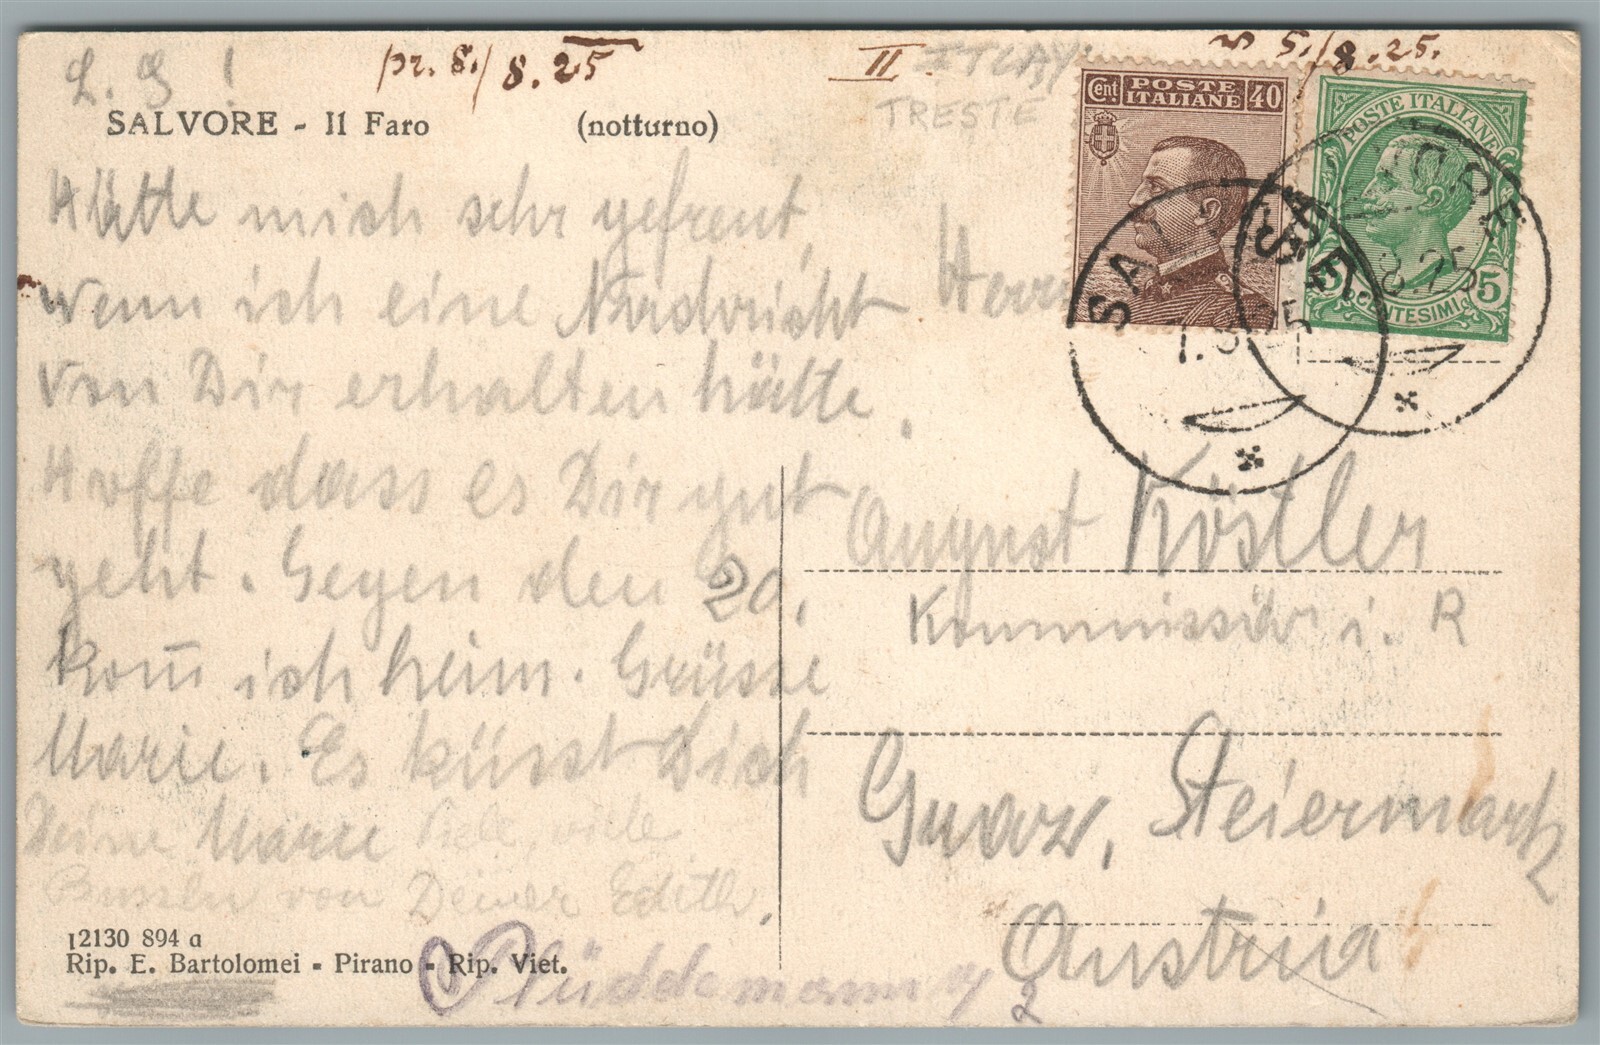 L. G !
pr. 8./8.25
II
ITLAY.
5./8.25.
TRESTE
SALVORE - Il Faro (notturno)
Cent POSTE ITALIANE 40
POSTE ITALIANE
5 CENTESIMI 5
SALVORE
8.25
Hätte mich sehr gefreut,
wenn ich eine Nachricht
von Dir erhalten hätte.
Hoffe dass es Dir gut
geht. Gegen den 20.
kom̄ ich heim. Grüsse
Marie. Es küsst Dich
Deine Marie Viele, viele
Bussln von Deiner Edith.
Herrn
August Köstler
Kommissär i. R
Graz, Steiermark
Austria
12130 894 a
Rip. E. Bartolomei - Pirano - Rip. Viet.